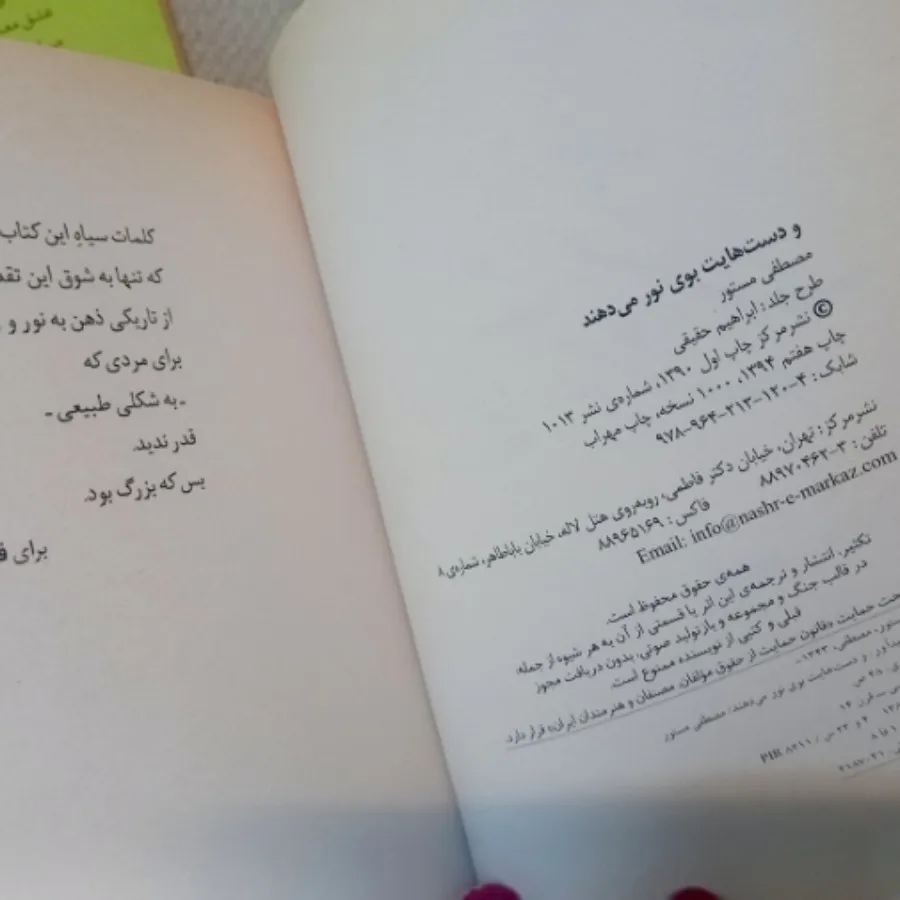 و دست‌هایت بوی نور می‌دهند
مصطفی مستور
طرح جلد: ابراهیم حقیقی
© نشرمرکز چاپ اول ۱۳۹۰، شماره‌ی نشر ۱۰۱۳
چاپ هفتم ۱۳۹۴، ۱۰۰۰ نسخه، چاپ مهراب
شابک: ۴-۱۲۰-۲۱۳-۹۶۴-۹۷۸
نشرمرکز: تهران، خیابان دکتر فاطمی، روبه‌روی هتل لاله، خیابان باباطاهر، شماره‌ی ۸
تلفن: ۳-۸۸۹۷۰۴۶۲ فاکس: ۸۸۹۶۵۱۶۹
Email: info@nashr-e-markaz.com
همه‌ی حقوق محفوظ است.
تکثیر، انتشار و ترجمه‌ی این اثر یا قسمتی از آن به هر شیوه از جمله:
در قالب جنگ و مجموعه و بازتولید صوتی، بدون دریافت مجوز
قبلی و کتبی از نویسنده ممنوع است.
حمایت «قانون حمایت از حقوق مؤلفان، مصنفان و هنرمندان ایران» قرار دارد.
مستور، مصطفی، ۱۳۴۳-
و دست‌هایت بوی نور می‌دهند/ مصطفی مستور
۴۸ ص
PIR ۸۲۱۱ /
کلمات سیاهِ این کتاب
که تنها به شوق این
از تاریکی ذهن به نور و
برای مردی که
ـ به شکلی طبیعی ـ
قدر ندید.
بس که بزرگ بود.
برای
عشق